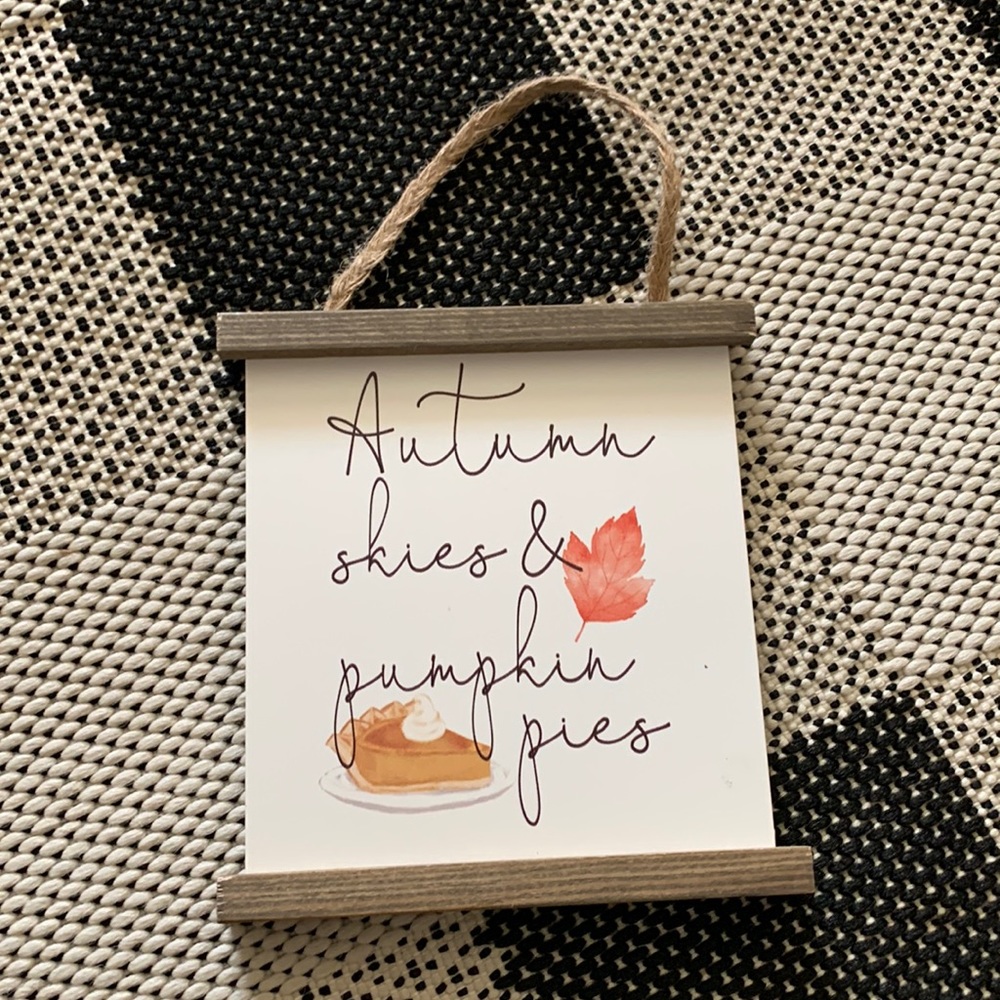 Autumn
skies &
pumpkin
pies